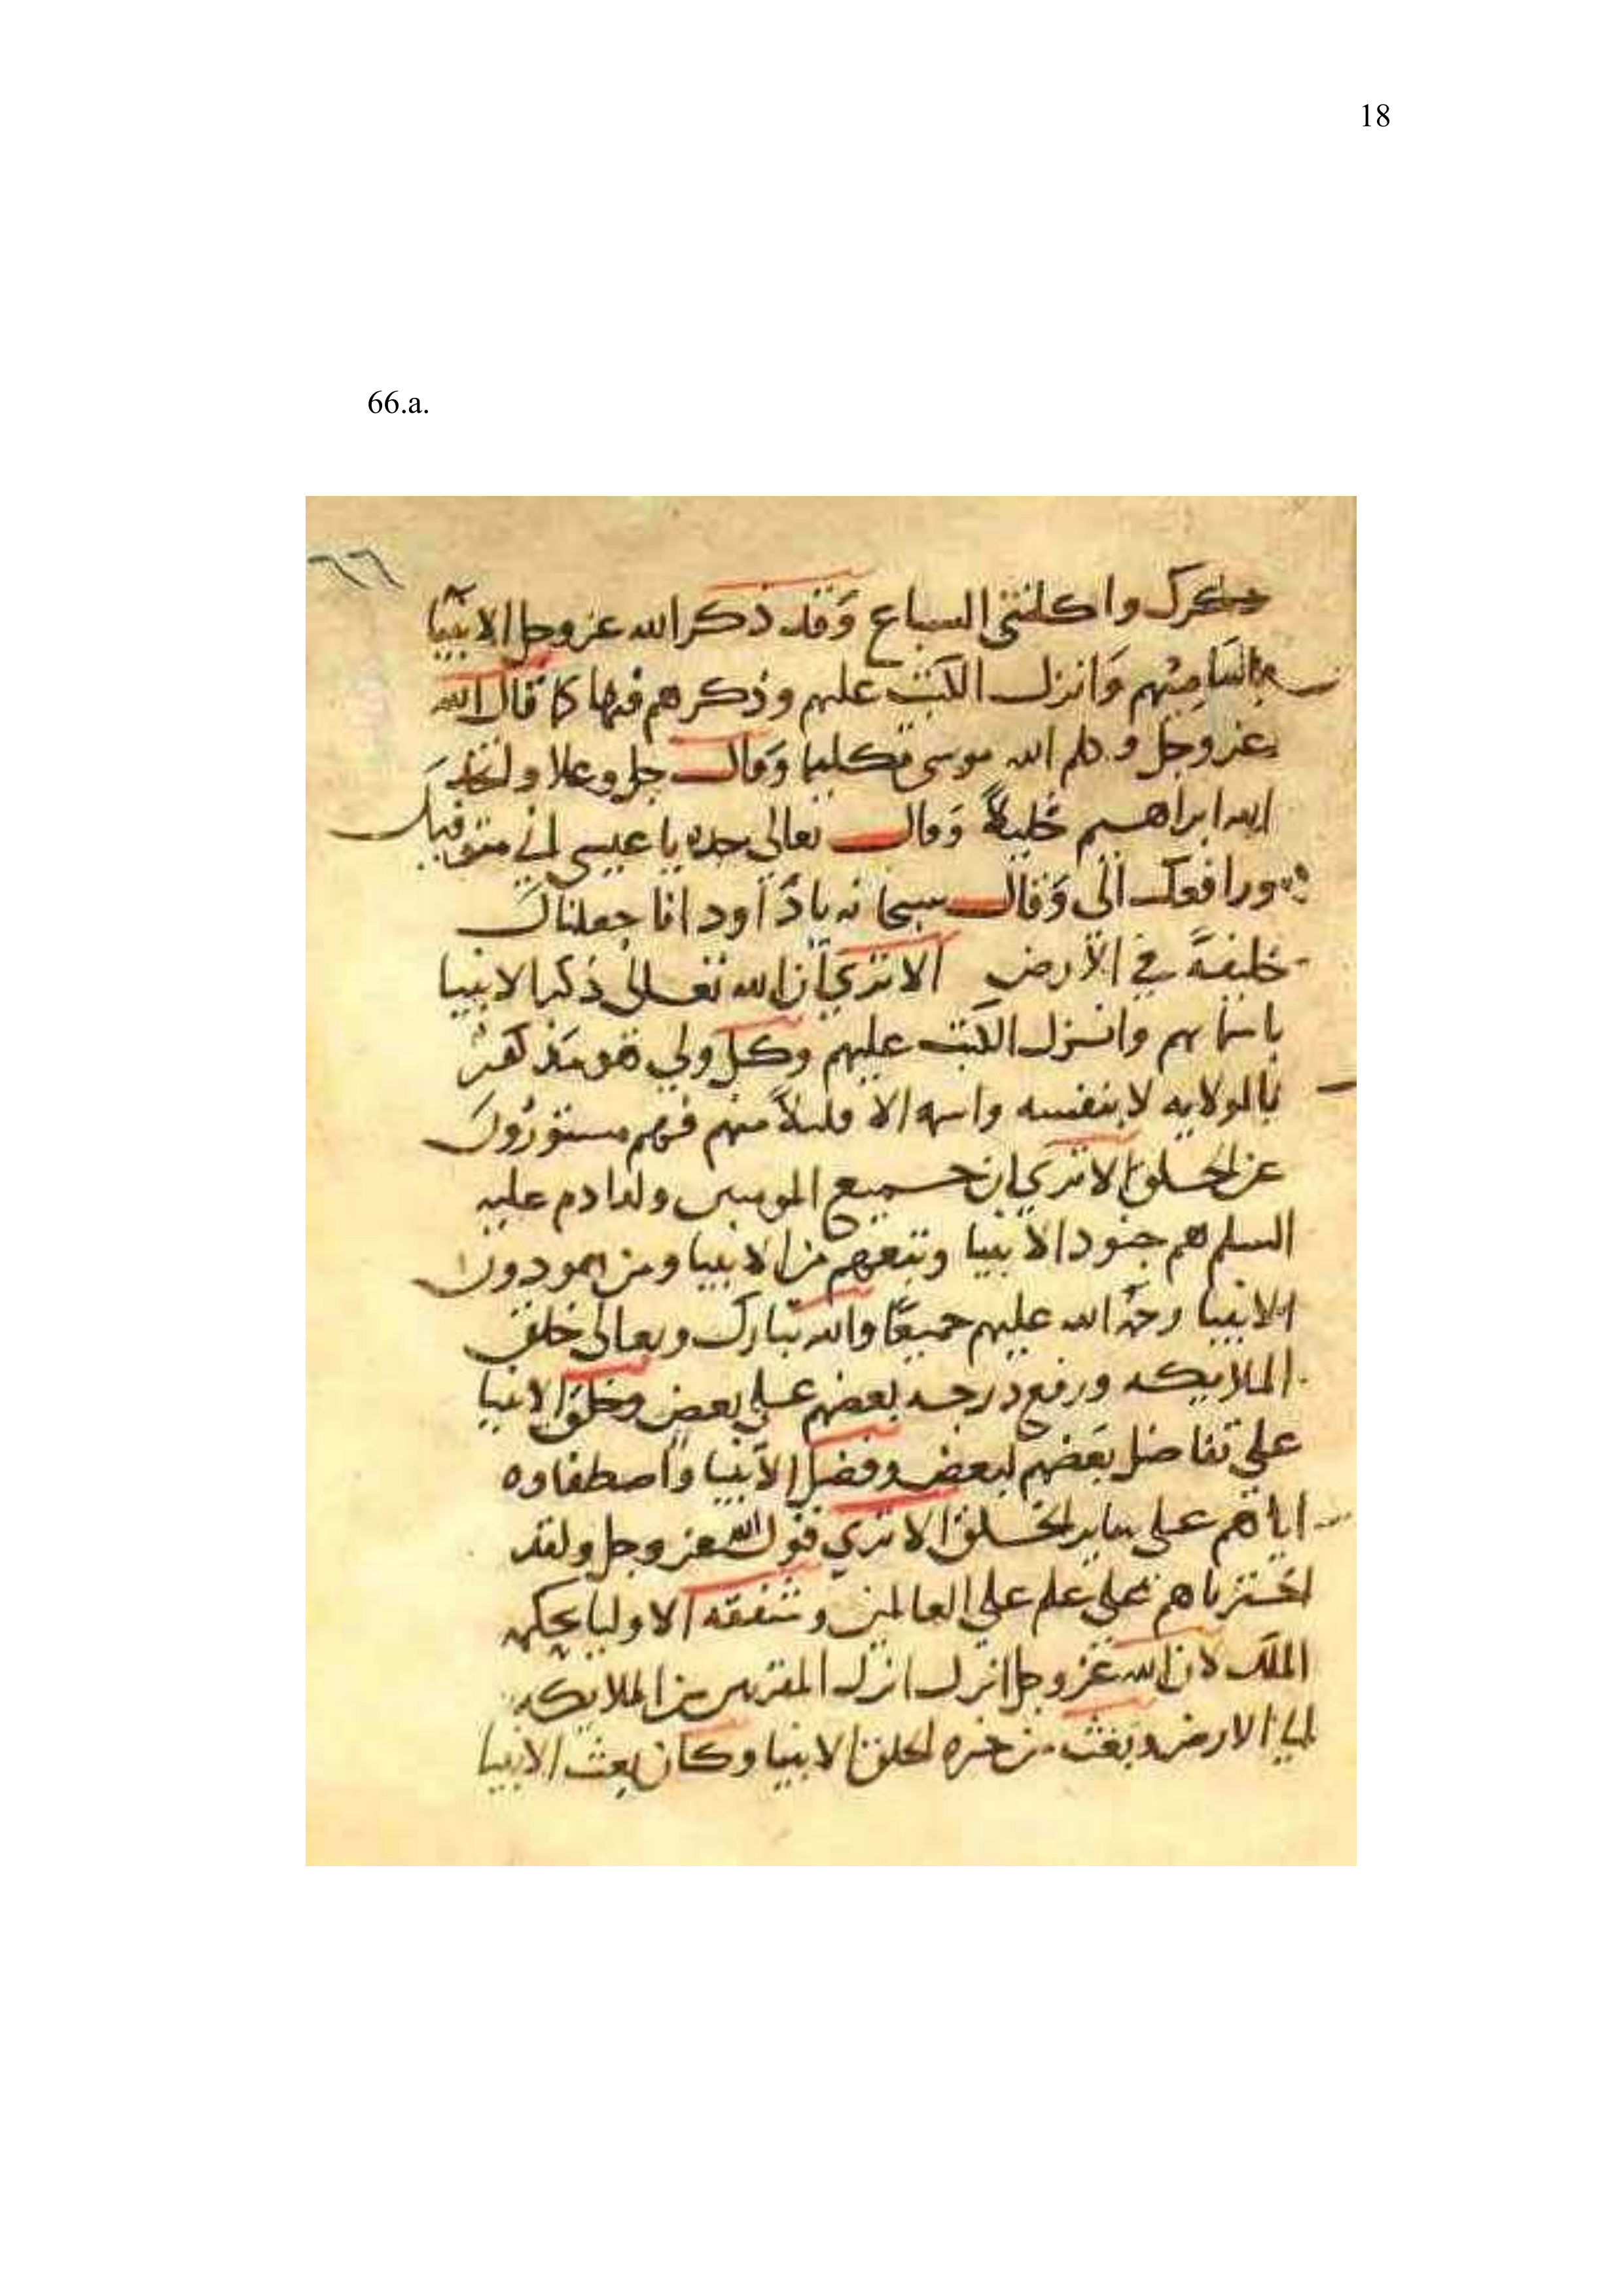 18
66.a.
٦٦
واكلتني السباع وقد ذكر الله عز وجل الانبيا
وانزل الكتب عليهم وذكرهم فيها كما قال الله
عز وجل وكلم الله موسى تكليما وقال جل وعلا واتخذ
الله ابراهيم خليلاً وقال تعالى جده يا عيسى اني متوفيك
ورافعك الي وقال سبحانه يا داود انا جعلناك
خليفة في الارض الا تري ان الله تعالى ذكر الانبيا
باسمايهم وانزل الكتب عليهم وكل ولي هو
بالولايه لا بنفسه واسمه الا قليلاً منهم فهم مستورون
عن الخلق الا تري ان جميع المومنين ولد ادم عليه
السلم هم جنود الانبيا وتبعهم من الانبيا ومن دون
الانبيا رحمة الله عليهم جميعًا والله تبارك وتعالى خلق
الملايكه ورفع درجه بعضهم على بعض وخلق الانبيا
على تفاضل بعضهم لبعض وفضل الانبيا واصطفاوه
اياهم على ساير الخلق الا تري قول الله عز وجل ولقد
اخترناهم على علم على العالمين الاوليا
الملك لان الله عز وجل انزل انزل المقربين من الملايكه
الي الارض وبعث من خيره الخلق الانبيا وكان بعث الانبيا